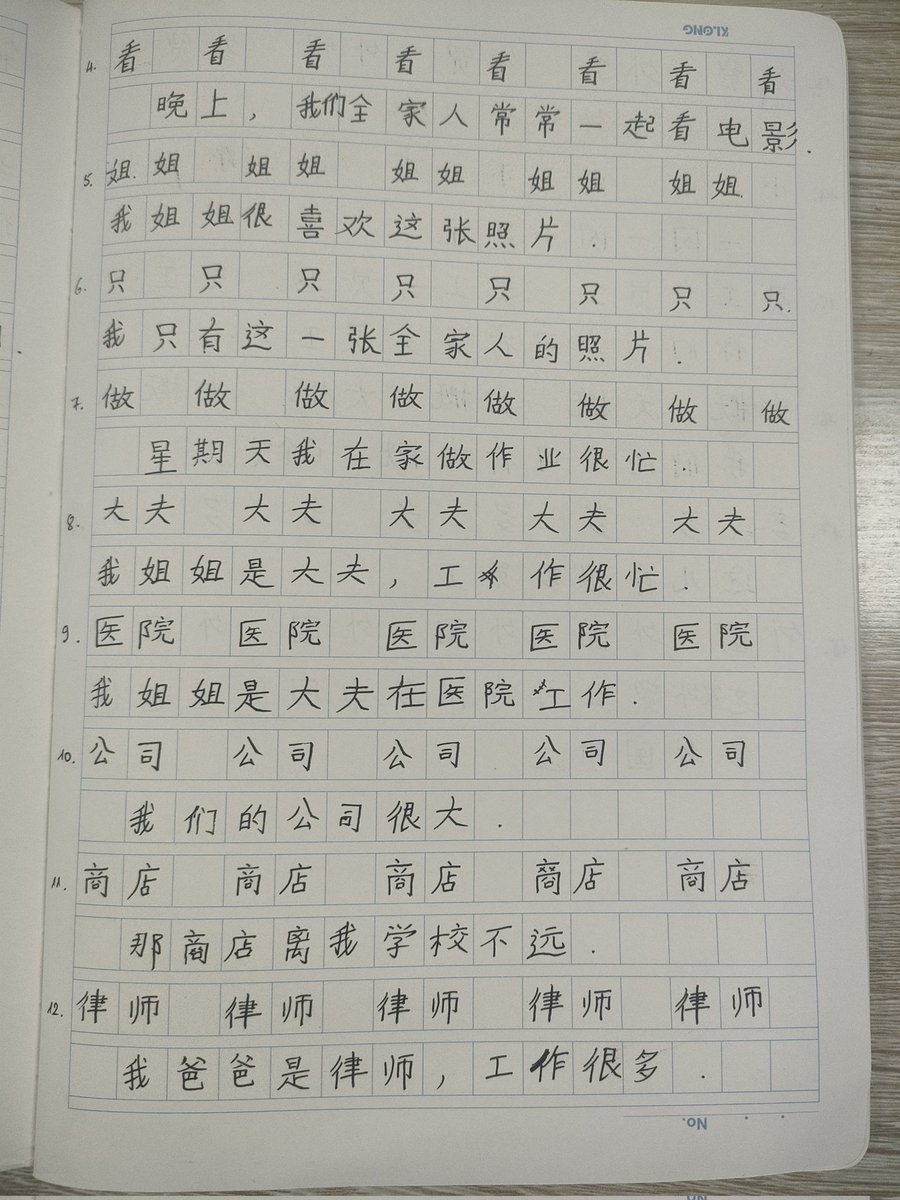 KLONG
4. 看 看 看 看 看 看 看 看
晚上，我们全家人常常一起看电影.
5. 姐姐 姐姐 姐姐 姐姐 姐姐.
我姐姐很喜欢这张照片.
6. 只 只 只 只 只 只 只 只.
我只有这一张全家人的照片.
7. 做 做 做 做 做 做 做 做
星期天我在家做作业很忙.
8. 大夫 大夫 大夫 大夫 大夫
我姐姐是大夫，工作很忙.
9. 医院 医院 医院 医院 医院
我姐姐是大夫在医院工作.
10. 公司 公司 公司 公司 公司
我们的公司很大.
11. 商店 商店 商店 商店 商店
那商店离我学校不远.
12. 律师 律师 律师 律师 律师
我爸爸是律师，工作很多.
No.